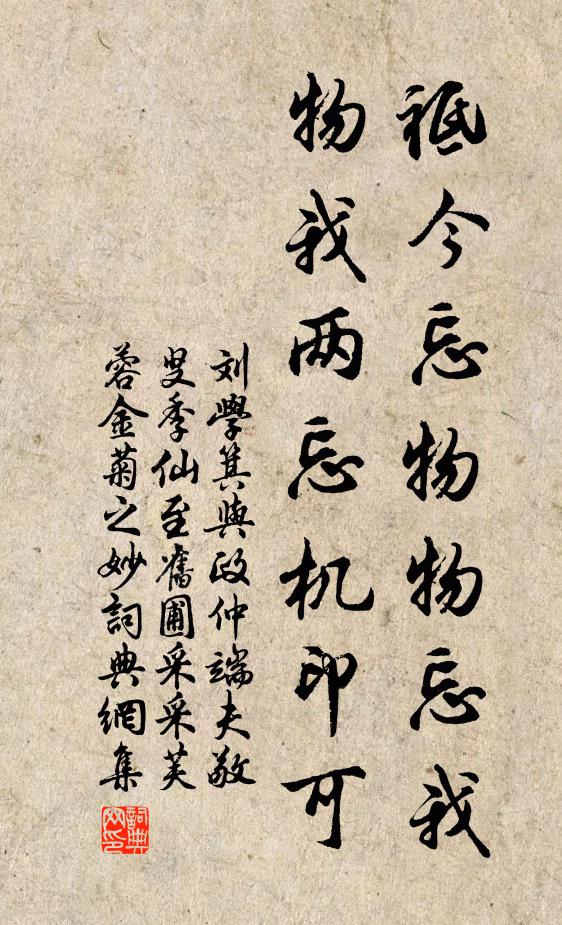 祗今忘物物忘我
物我两忘机印可
刘學箕與政仲端夫敬
叟季仙至舊圃采采芙
蓉金菊之妙詞典網集
詞典网印